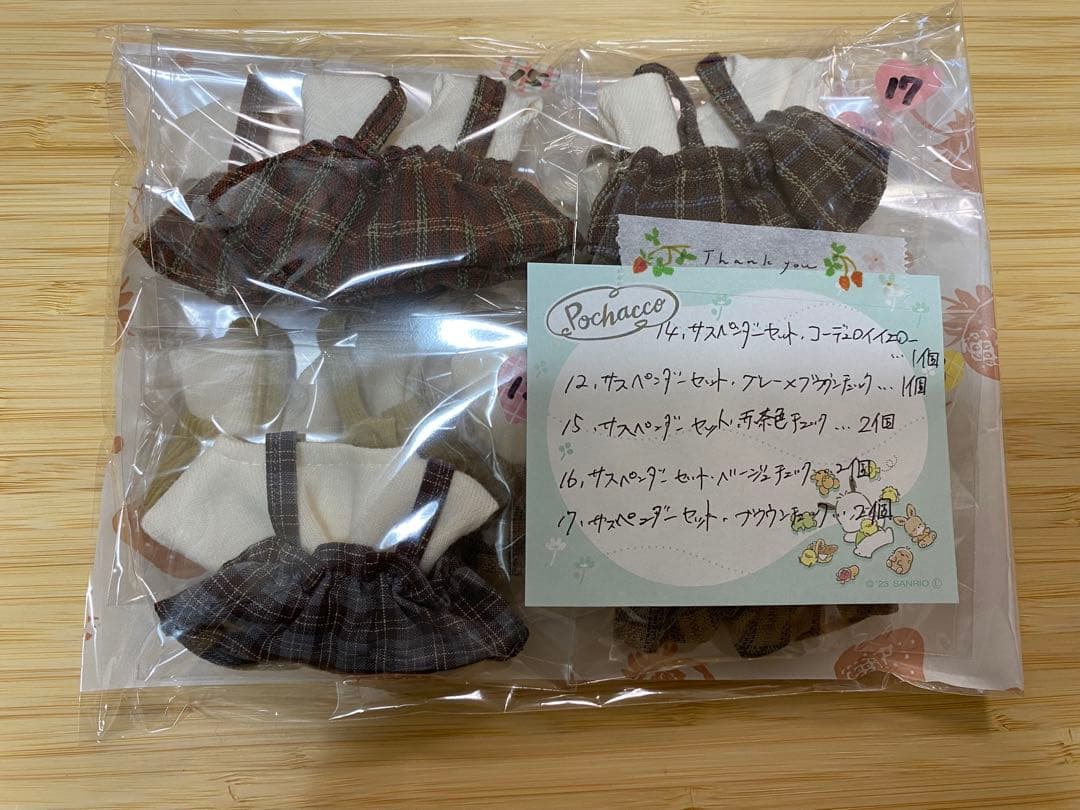 15
17
Thank you
Pochacco
14.サスペンダーセット.コーデュロイイエロー
...1個
12.サスペンダーセット.グレー×ブラウンチェック...1個
15.サスペンダーセット.赤茶色チェック...2個
16.サスペンダーセット.ベージュチェック...2個
17.サスペンダーセット.ブラウンチェック...2個
© '23 SANRIO Ⓛ